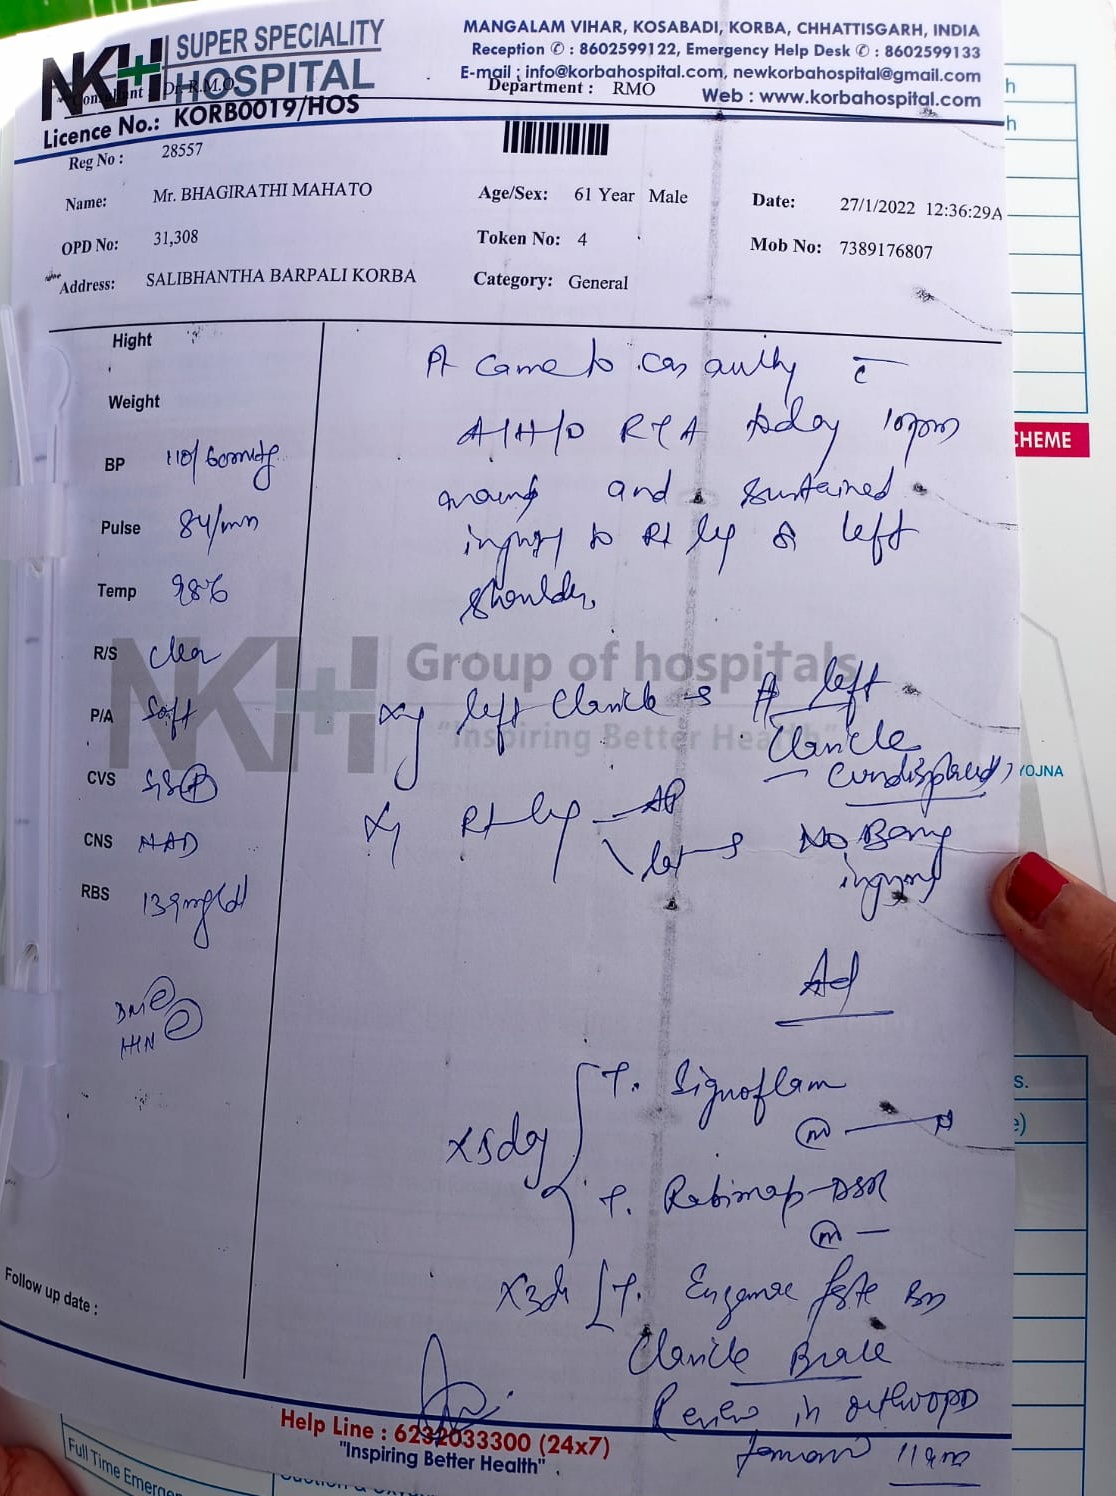 NKH SUPER SPECIALITY HOSPITAL
MANGALAM VIHAR, KOSABADI, KORBA, CHHATTISGARH, INDIA
Reception ✆ : 8602599122, Emergency Help Desk ✆ : 8602599133
E-mail : info@korbahospital.com, newkorbahospital@gmail.com
Consultant : Dr. R.M.O. Department : RMO
Web : www.korbahospital.com
Licence No.: KORB0019/HOS
Reg No : 28557
Name: Mr. BHAGIRATHI MAHATO Age/Sex: 61 Year Male Date: 27/1/2022 12:36:29A
OPD No: 31,308 Token No: 4 Mob No: 7389176807
Address: SALIBHANTHA BARPALI KORBA Category: General
Hight
Weight
BP 110/60mmHg
Pulse 84/mn
Temp 98
R/S clear
P/A Soft
CVS
CNS NAD
RBS 139mg/dl
DM
HTN
Pt came to casuality c̄
A/H/O RTA today 10pm
and sustained
injury to Rt leg & left
shoulder.
NKH Group of hospitals
"Inspiring Better Health"
Xy left Clavicle left
Clavicle
(undisplaced)
Xy Rt leg AP
lat No Bony
injury
Ad
x5day
T. Signoflam
T. Rabimap-DSR
T. Enzomac forte
Clavicle Brace
Review in ortho OPD
11am
Follow up date :
Help Line : 6232033300 (24x7)
"Inspiring Better Health"
h
h
CHEME
YOJNA
s.
e)
Full Time Emerge